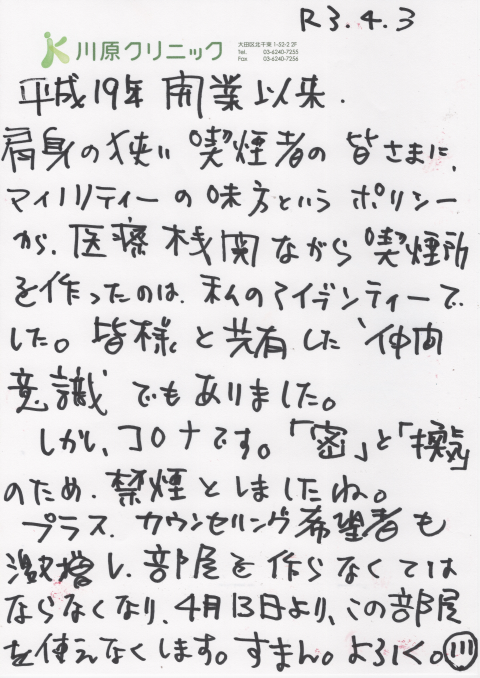 R3.4.3
川原クリニック
大田区北千束 1-52-2 2F
Tel. 03-6240-7255
Fax 03-6240-7256
平成19年 開業以来、
肩身の狭い 喫煙者の 皆さまに、
マイノリティーの味方という ポリシー
が、医療機関ながら喫煙所
を作ったのは、私のアイデンティーで
した。皆様と共有した"仲間
意識"でもありました。
しかし、コロナです。「密」と「換気」
のため、禁煙としましたね。
プラス、カウンセリング希望者も
激増し、部屋を作らなくては
ならなくなり、4月13日より、この部屋
を使えなくします。すまん。よろしく。川